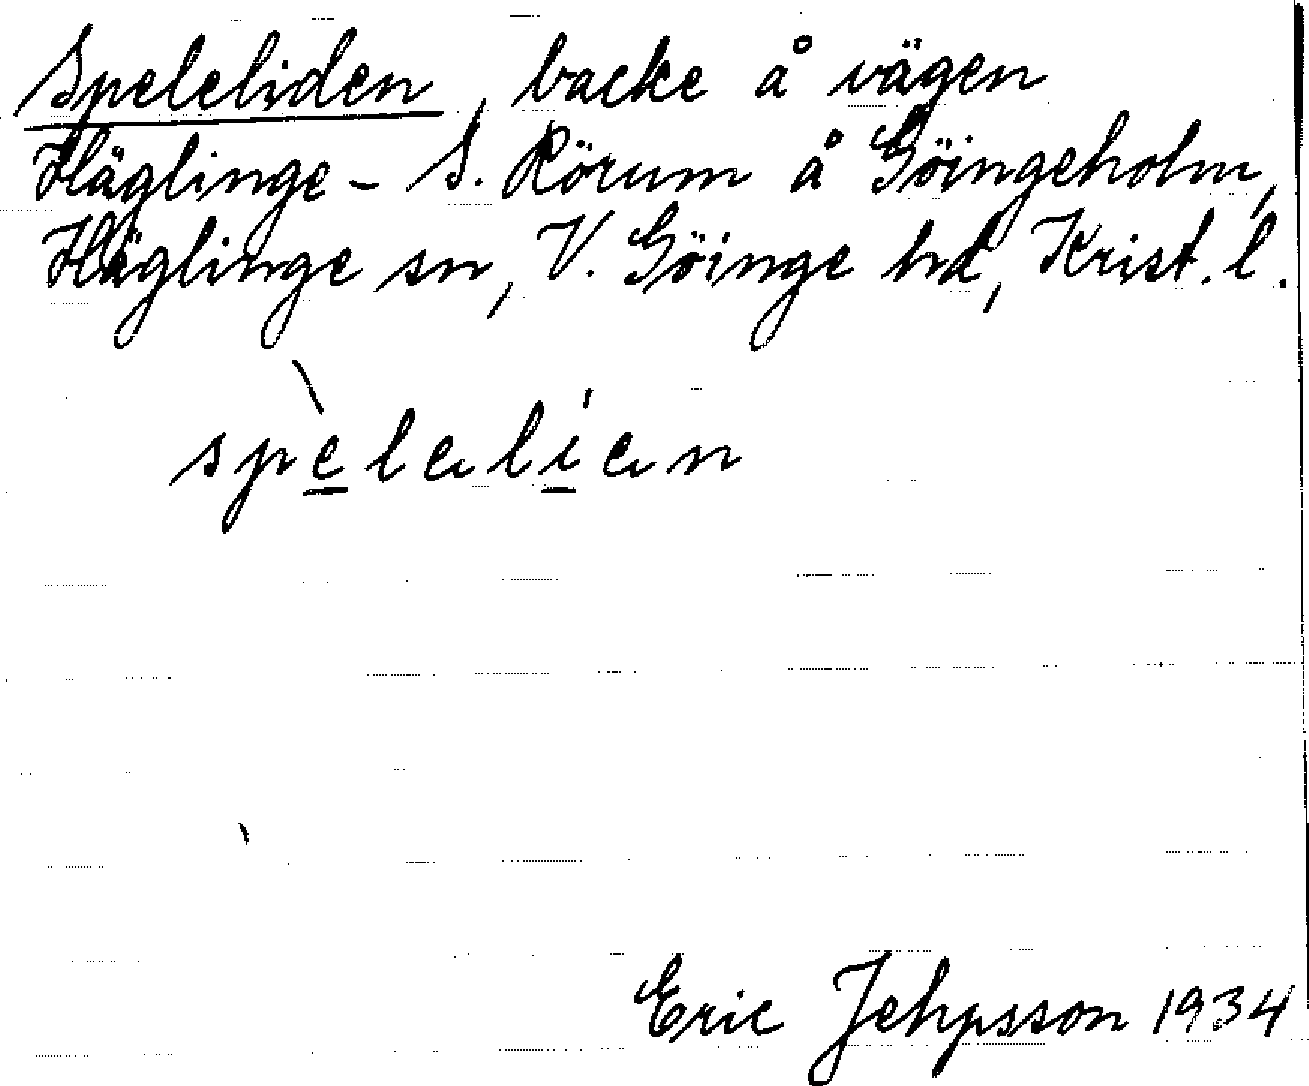 Speleliden, backe å vägen
Häglinge - S. Rörum å Göingeholm,
Häglinge sn, V. Göinge hd, Krist. l.
spèlalían
Eric Jehpsson 1934